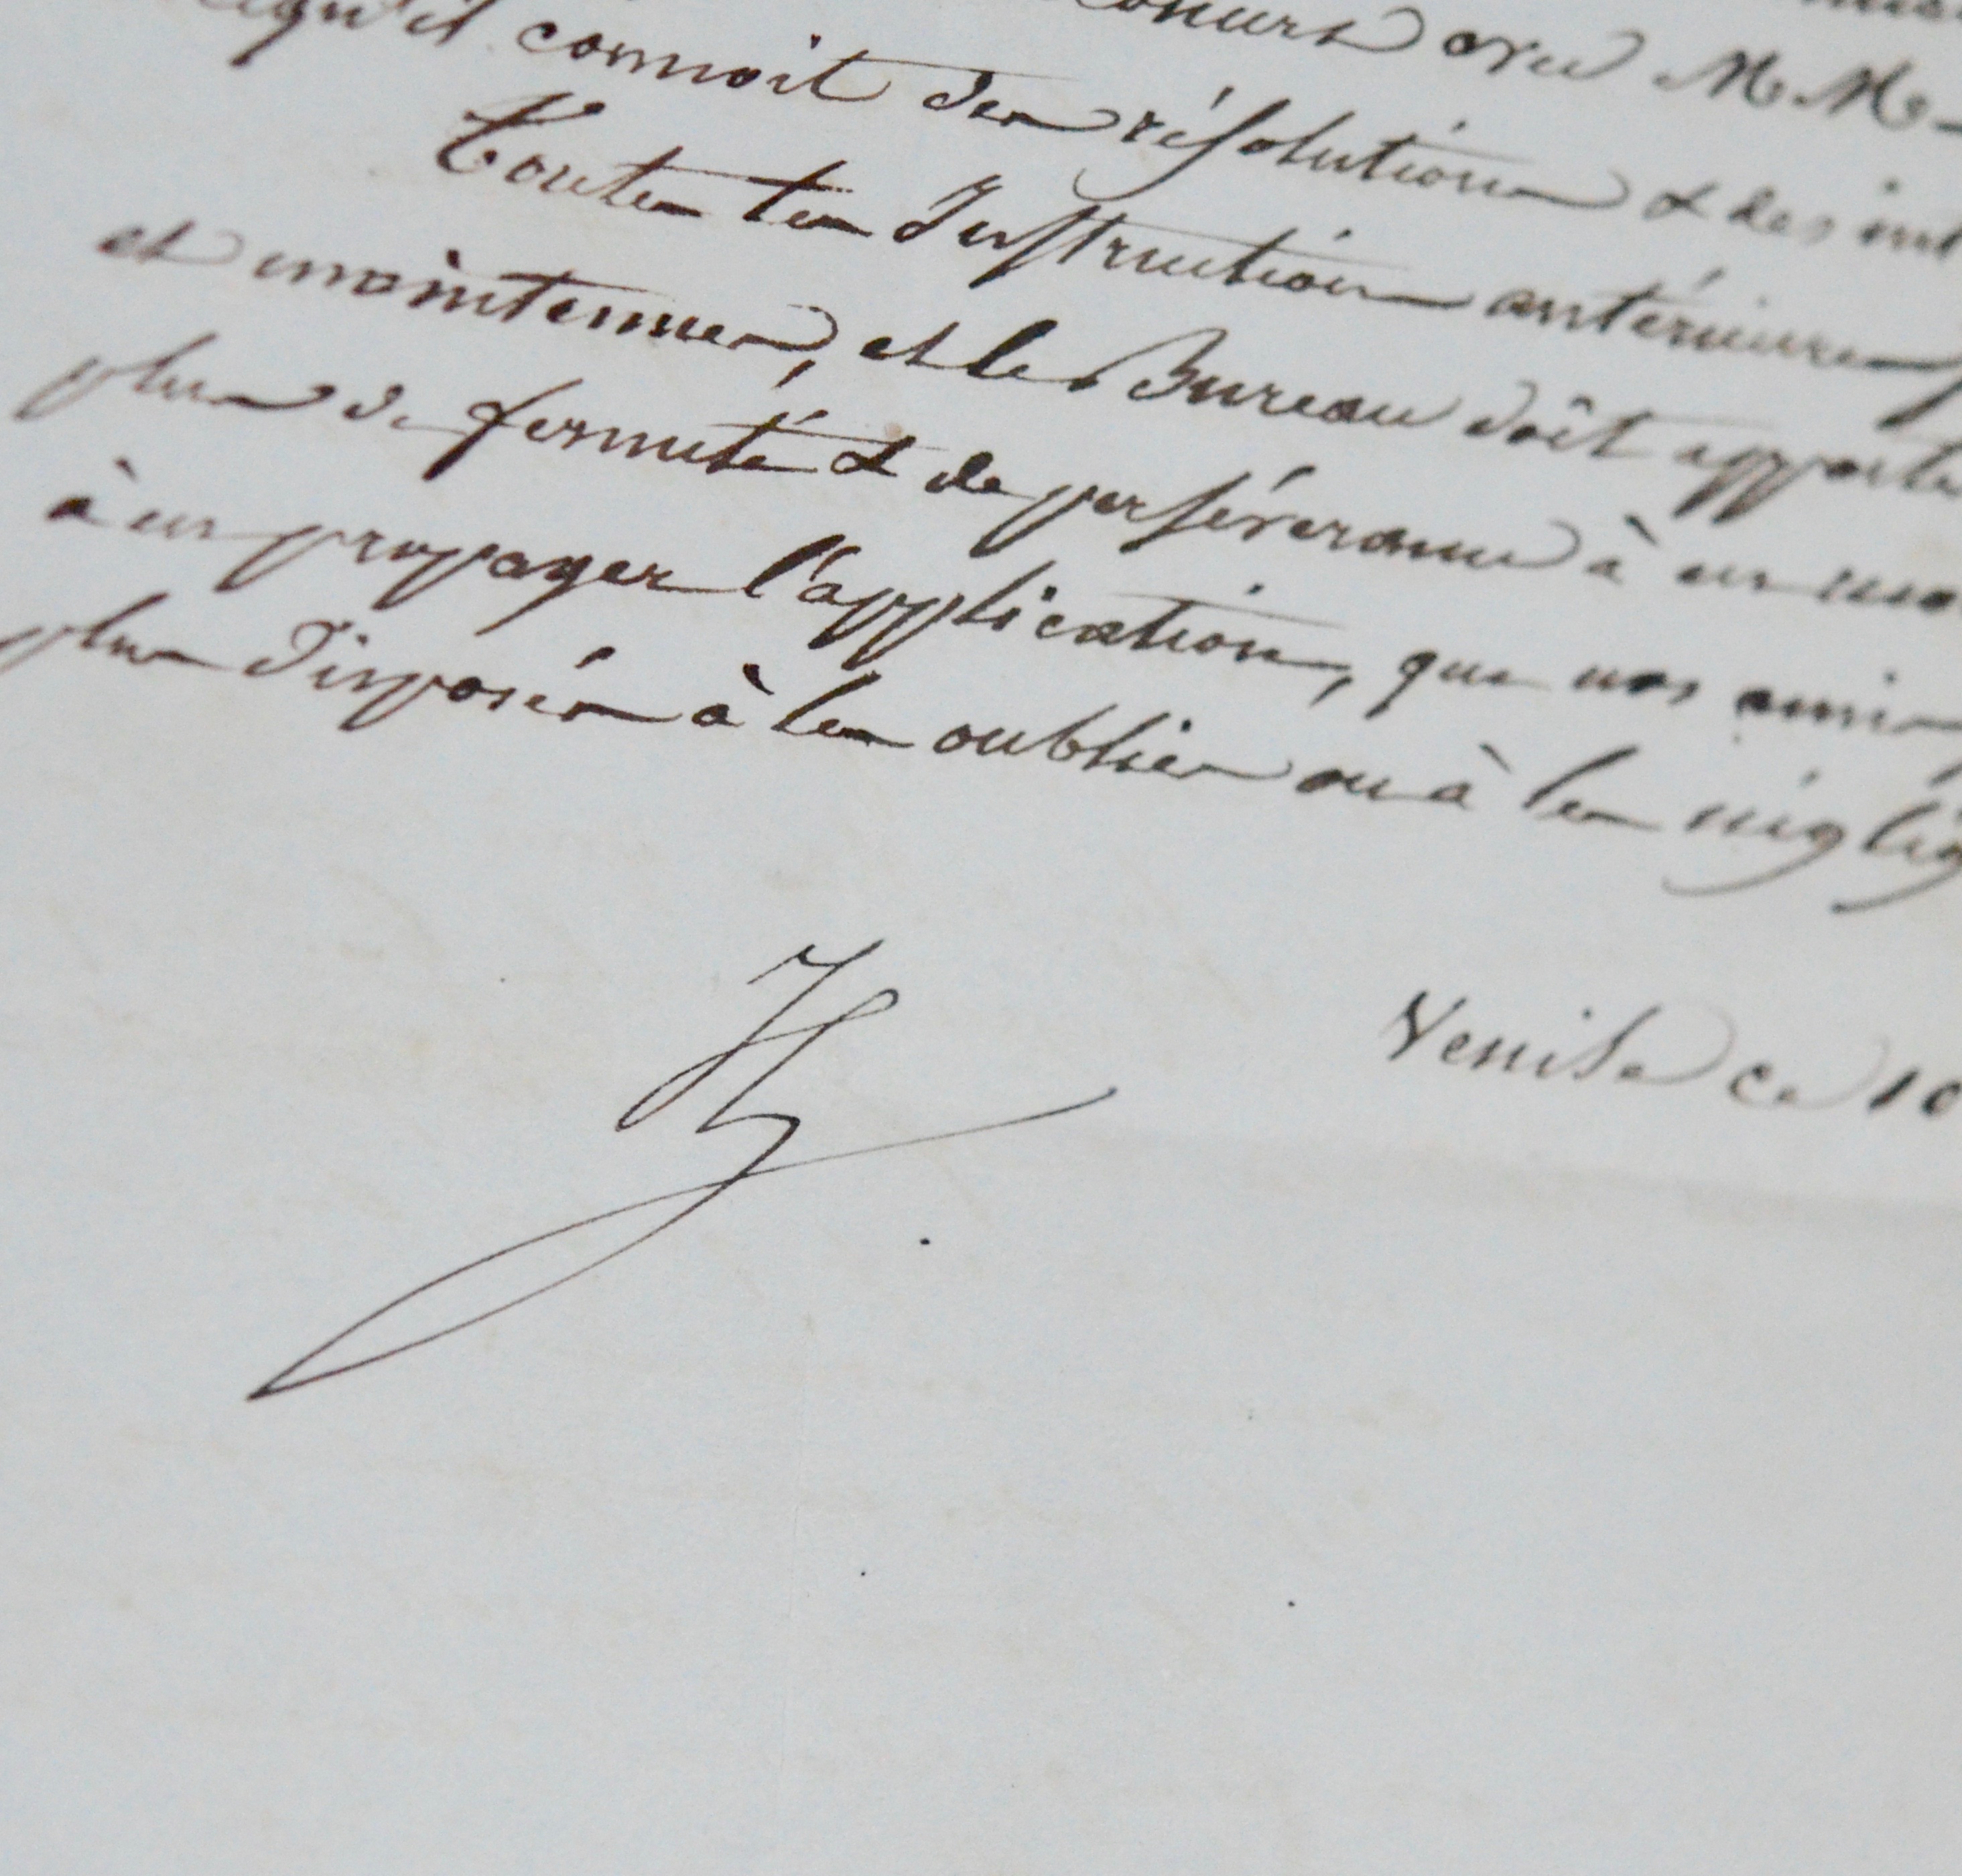 concours avec M.M.
qu'il connoit des résolutions & des int
Toutes les Instructions antérieures
et maintenues, et le Bureau doît apporte
plus de fermeté & de persévérance à en
à en propager l'application, que nos amis
plus disposés à les oublier ou à les néglig
Venise ce 10